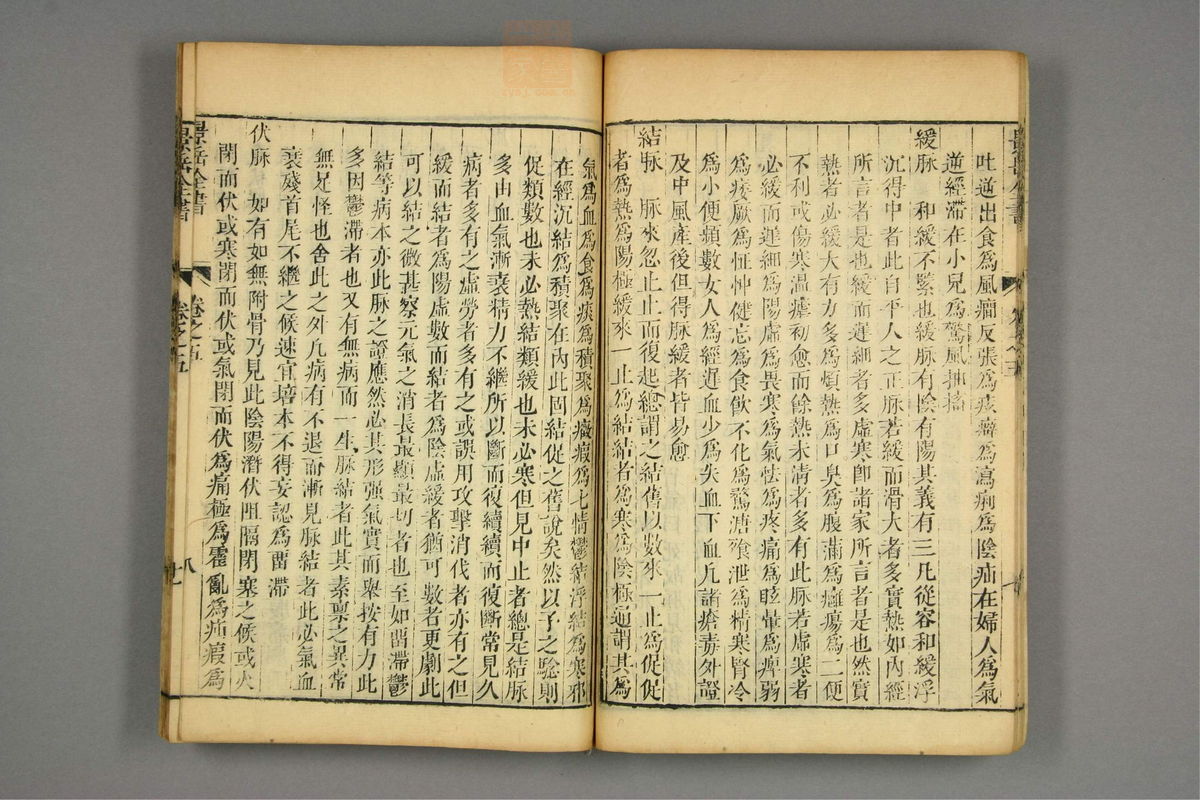 吐逆出食為風癎反張為痰癖為瀉痢為陰疝在婦人為氣
逆經滯在小兒為驚風抽搐
緩脉　和緩不緊也緩脉有陰有陽其義有三凡從容和緩浮
沉得中者此自平人之正脉若緩而滑大者多實熱如內經
所言者是也緩而遲細者多虛寒即諸家所言者是也然實
熱者必緩大有力多為煩熱為口臭為腹滿為癰瘍為二便
不利或傷寒溫瘧初愈而餘熱未清者多有此脉若虛寒者
必緩而遲細為陽虛為畏寒為氣怯為疼痛為眩暈為痺弱
為痿厥為怔忡健忘為食飲不化為鶩溏飱泄為精寒腎冷
為小便頻數女人為經遲血少為失血下血凡諸瘡毒外證
及中風產後但得脉緩者皆易愈
結脉　脉來忽止止而復起總謂之結舊以數來一止為促促
者為熱為陽極緩來一止為結結者為寒為陰極通謂其為
氣為血為食為痰為積聚為癥瘕為七情鬱結浮結為寒邪
在經沉結為積聚在內此固結促之舊說矣然以予之驗則
促類數也未必熱結類緩也未必寒但見中止者總是結脉
多由血氣漸衰精力不繼所以斷而復續續而復斷常見久
病者多有之虛勞者多有之或誤用攻擊消伐者亦有之但
緩而結者為陽虛數而結者為陰虛緩者猶可數者更劇此
可以結之微甚察元氣之消長最顯最切者也至如畱滯鬱
結等病本亦此脉之證應然必其形强氣實而舉按有力此
多因鬱滯者也又有無病而一生脉結者此其素禀之異常
無足怪也舍此之外凡病有不退而漸見脉結者此必氣血
衰殘首尾不繼之候速宜培本不得妄認為畱滯
伏脉　如有如無附骨乃見此陰陽潛伏阻隔閉塞之候或火
閉而伏或寒閉而伏或氣閉而伏為痛極為霍亂為疝瘕為
景岳全書　卷之五　八